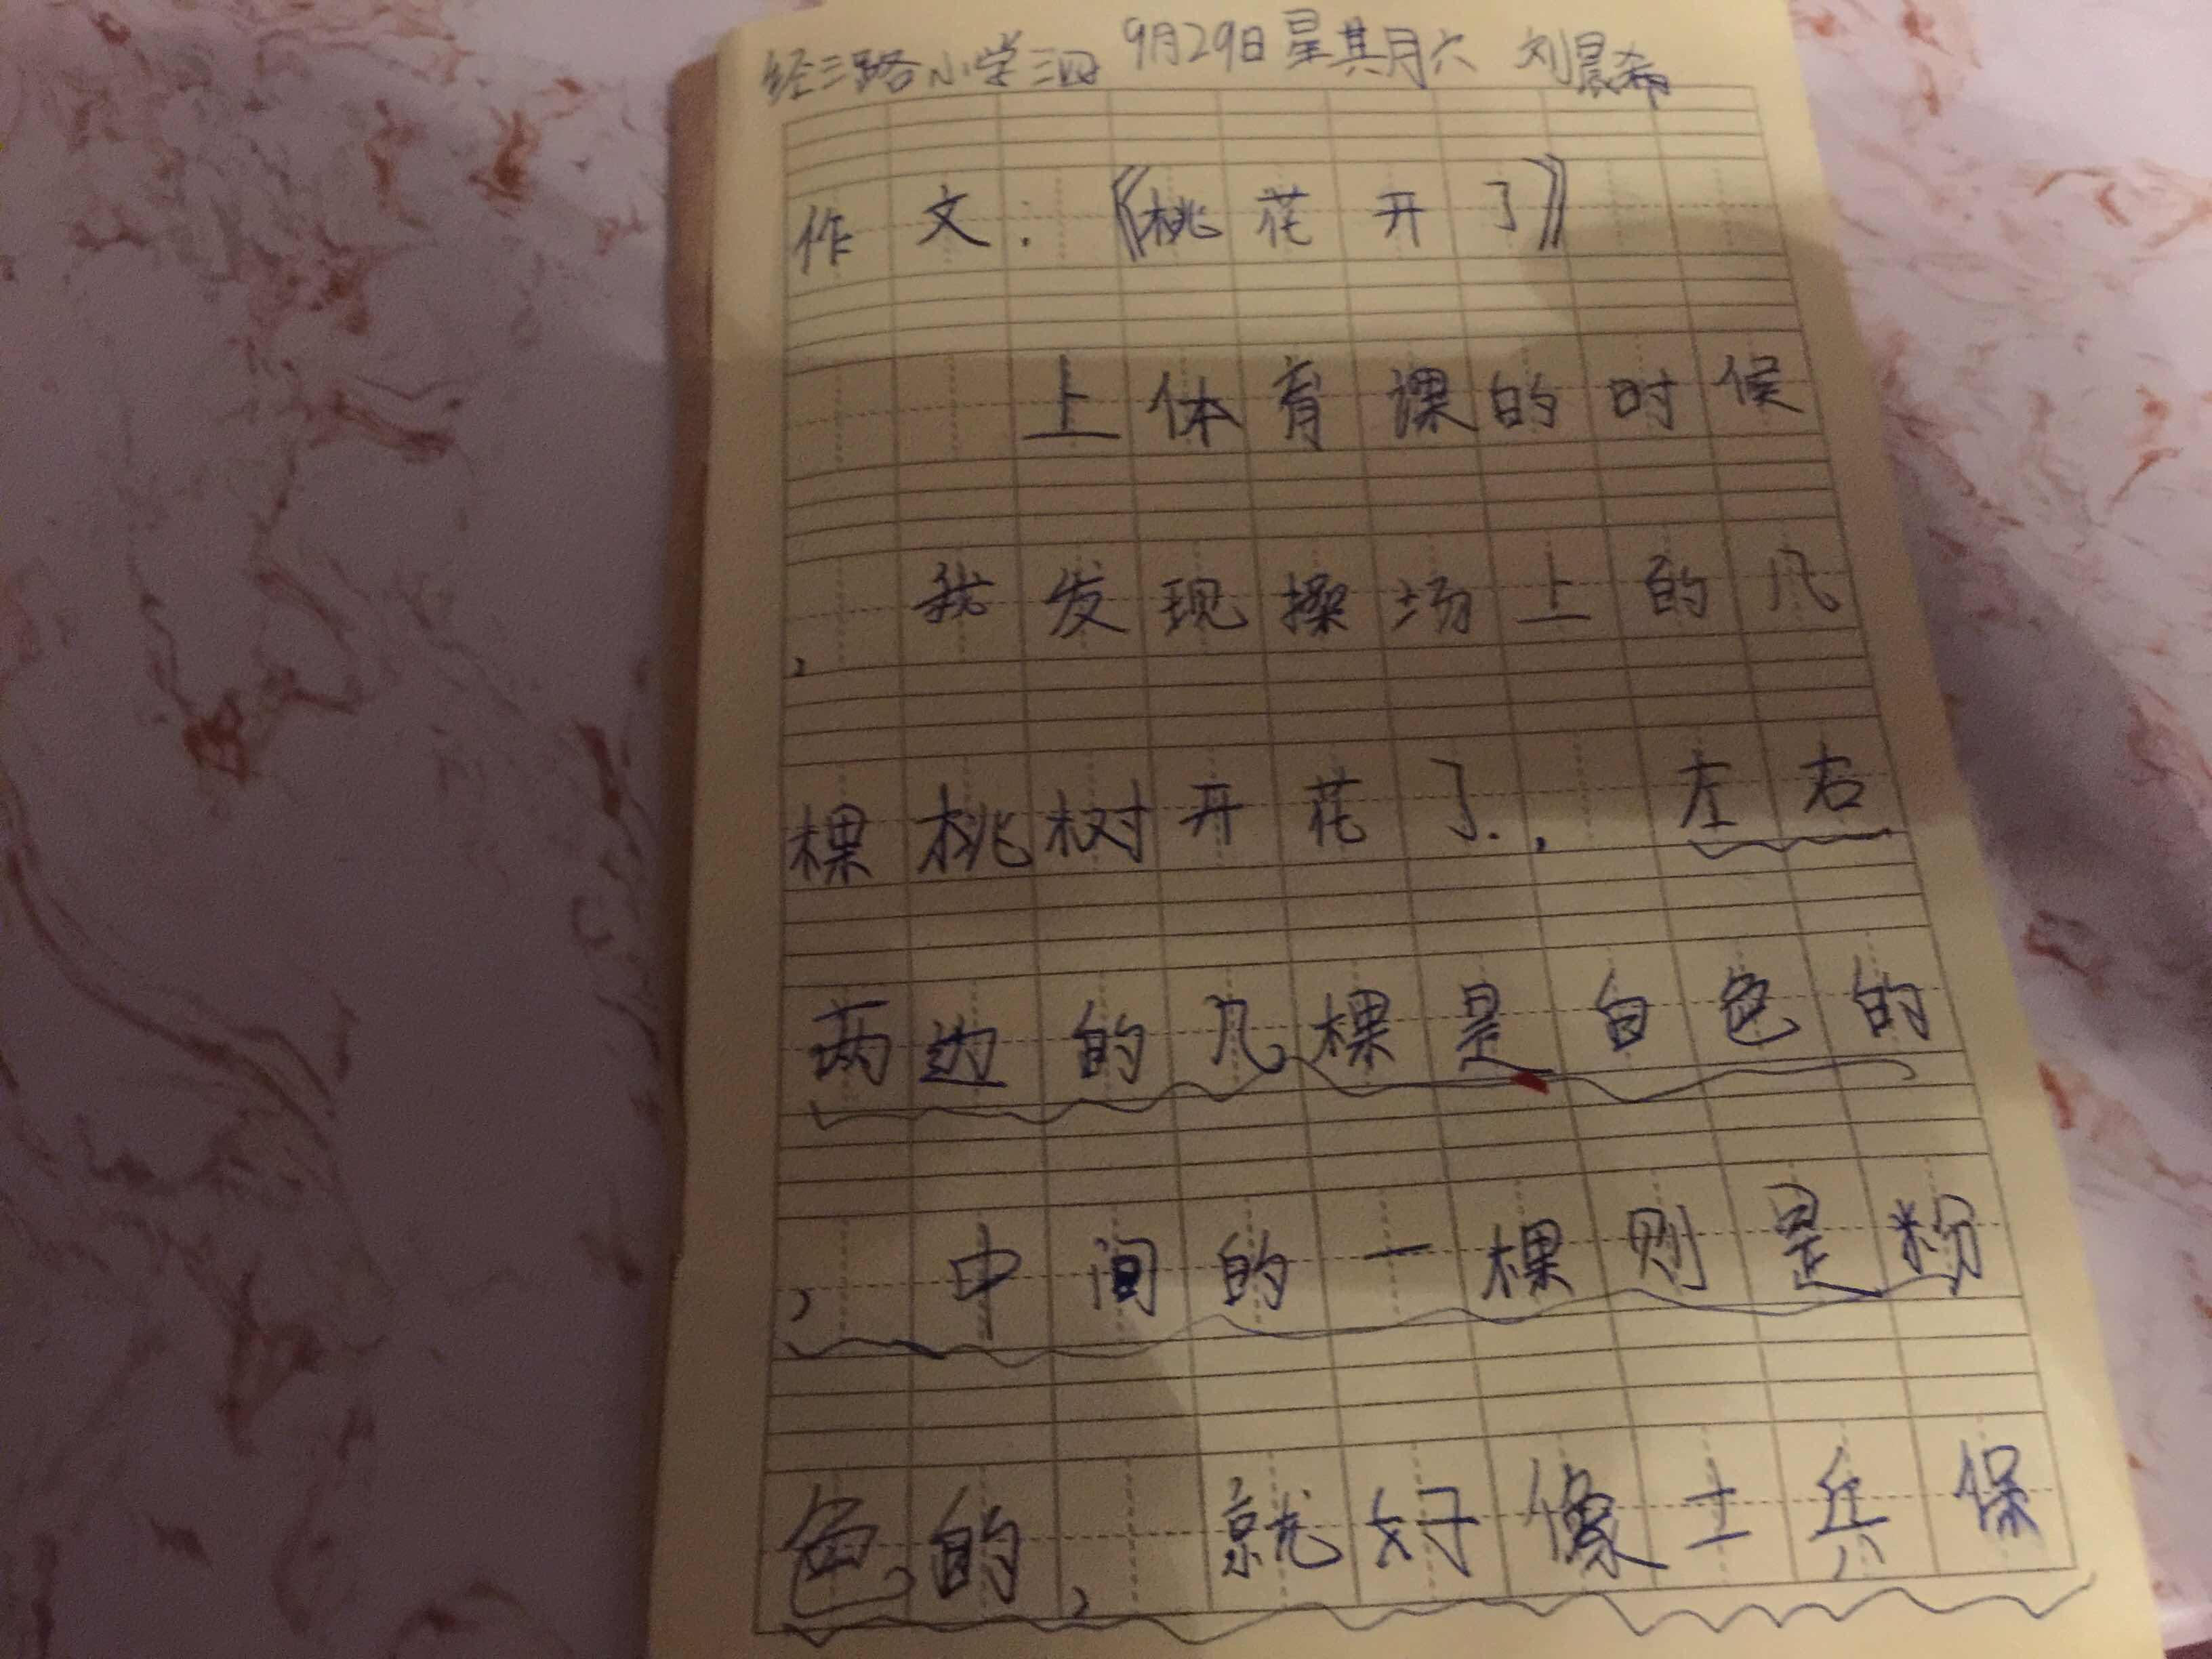 经三路小学三四 9月29日星其月六 刘晨希
作文:《桃花开了》
上体育课的时候
,我发现操场上的几
棵桃树开花了.,左右
两边的几棵是白色的
,中间的一棵则是粉
色的,就好像士兵保